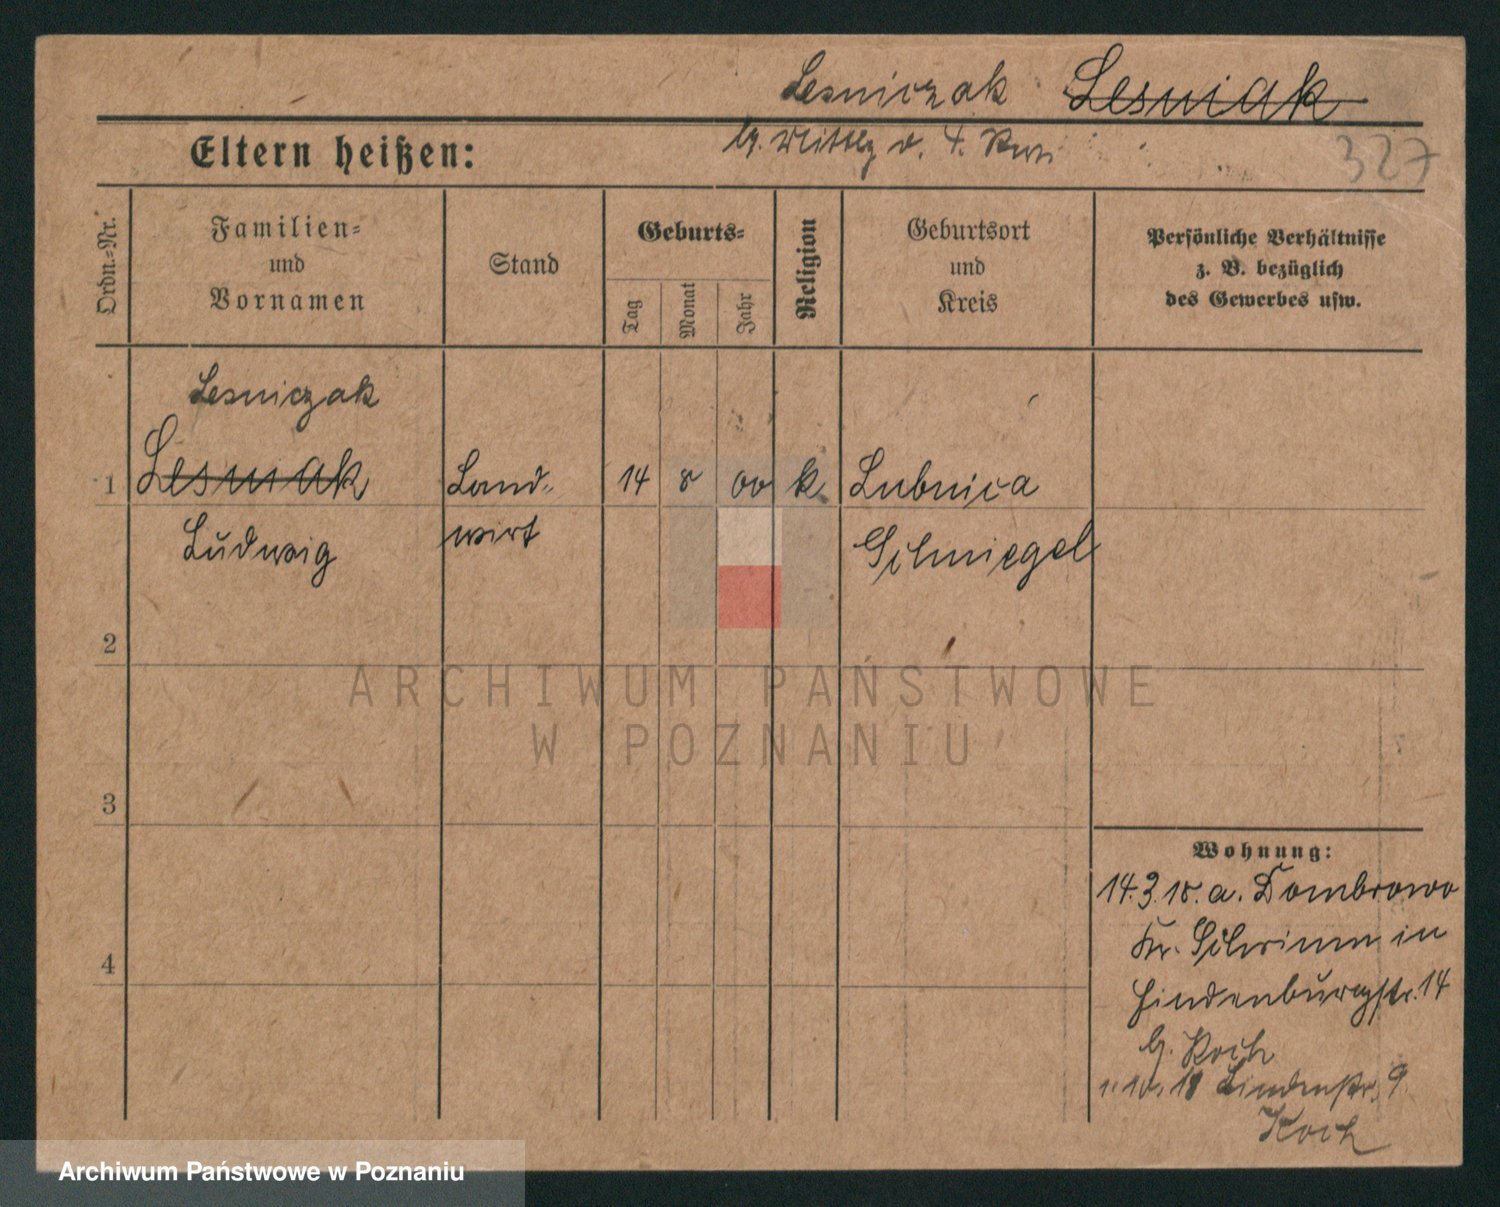 Lesniczak Lesniak
327
Eltern heißen:
Ordn.-Nr.
Familien-
und
Vornamen
Stand
Geburts-
Tag
Monat
Jahr
Religion
Geburtsort
und
Kreis
Persönliche Verhältnisse
z. B. bezüglich
des Gewerbes usw.
Lesniczak
1 Lesniak Land- 14 8 00 k Lubnica
Ludwig wirt Schmiegel
2
3
4
Wohnung:
14.3.18. a. Dombrowo
Kr. Schrimm in
Hindenburgstr. 14
b. Koch
1.10.18 Lindenstr. 9
Koch
ARCHIWUM PAŃSTWOWE
W POZNANIU
Archiwum Państwowe w Poznaniu